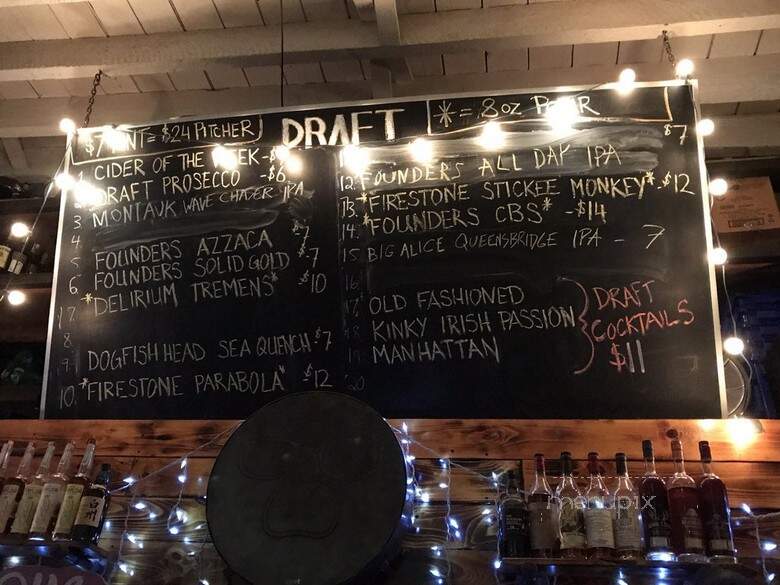 $7 PINT = $24 PITCHER
DRAFT
* = 8 OZ POUR
1. CIDER OF THE WEEK - $8
2. DRAFT PROSECCO - $6
3. MONTAUK WAVE CHASER IPA
4.
5. FOUNDERS AZZACA 7
6. FOUNDERS SOLID GOLD - 7
7. *DELIRIUM TREMENS* $10
8
9. DOGFISH HEAD SEA QUENCH $7
10. *FIRESTONE PARABOLA* - $12
12. FOUNDERS ALL DAY IPA $7
13. *FIRESTONE STICKEE MONKEY* - $12
14. *FOUNDERS CBS* - $14
15. BIG ALICE QUEENSBRIDGE IPA - 7
16
17. OLD FASHIONED
18 KINKY IRISH PASSION
19 MANHATTAN
20
DRAFT
COCKTAILS
$11
menupix